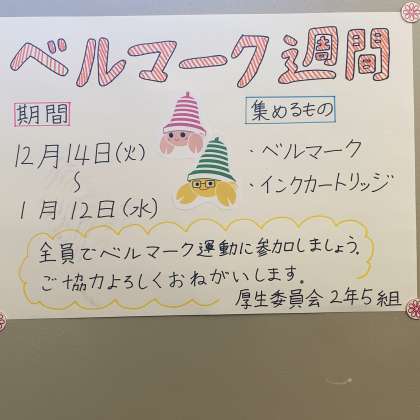 ベルマーク週間
期間
12月14日(火)
~
1月12日(水)
集めるもの
・ベルマーク
・インクカートリッジ
全員でベルマーク運動に参加しましょう。
ご協力よろしくおねがいします。
厚生委員会 2年5組